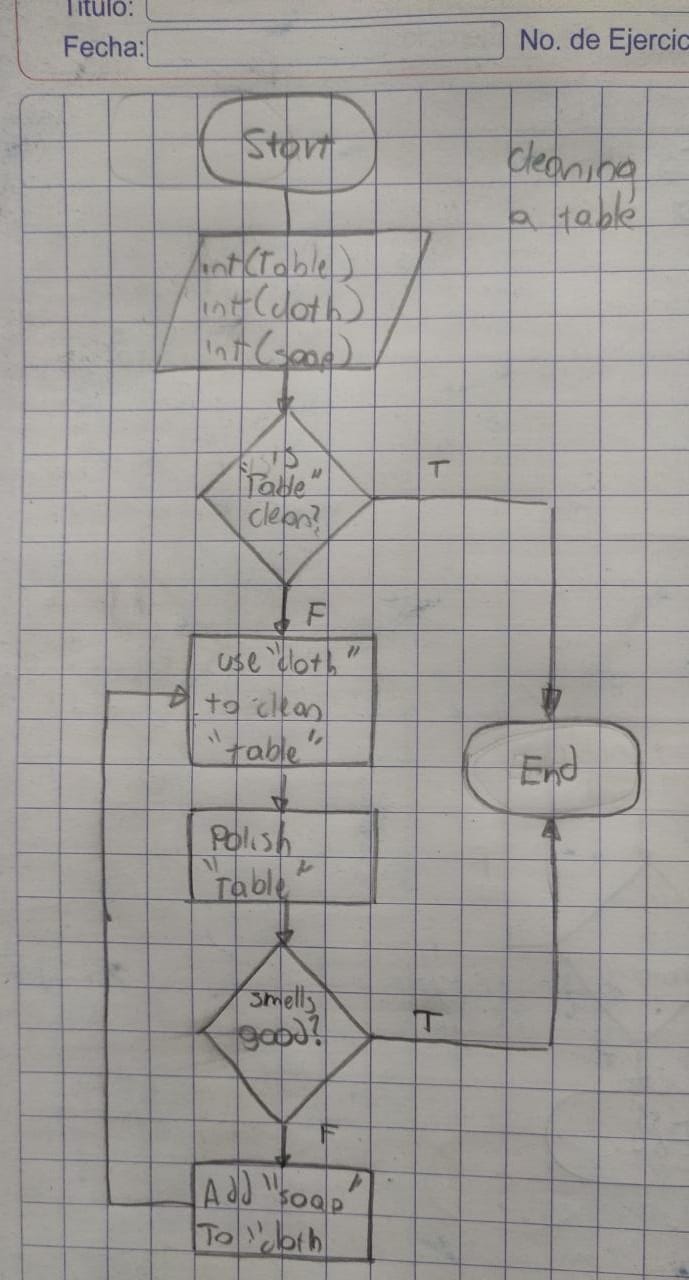 Título:
Fecha:
No. de Ejercic
cleaning
a table
Start
int(Table)
int(cloth)
int(soap)
"is
Table"
clean?
T
F
use "cloth"
to clean
"table"
End
Polish
"Table"
smells
good?
T
F
Add "soap"
To "cloth